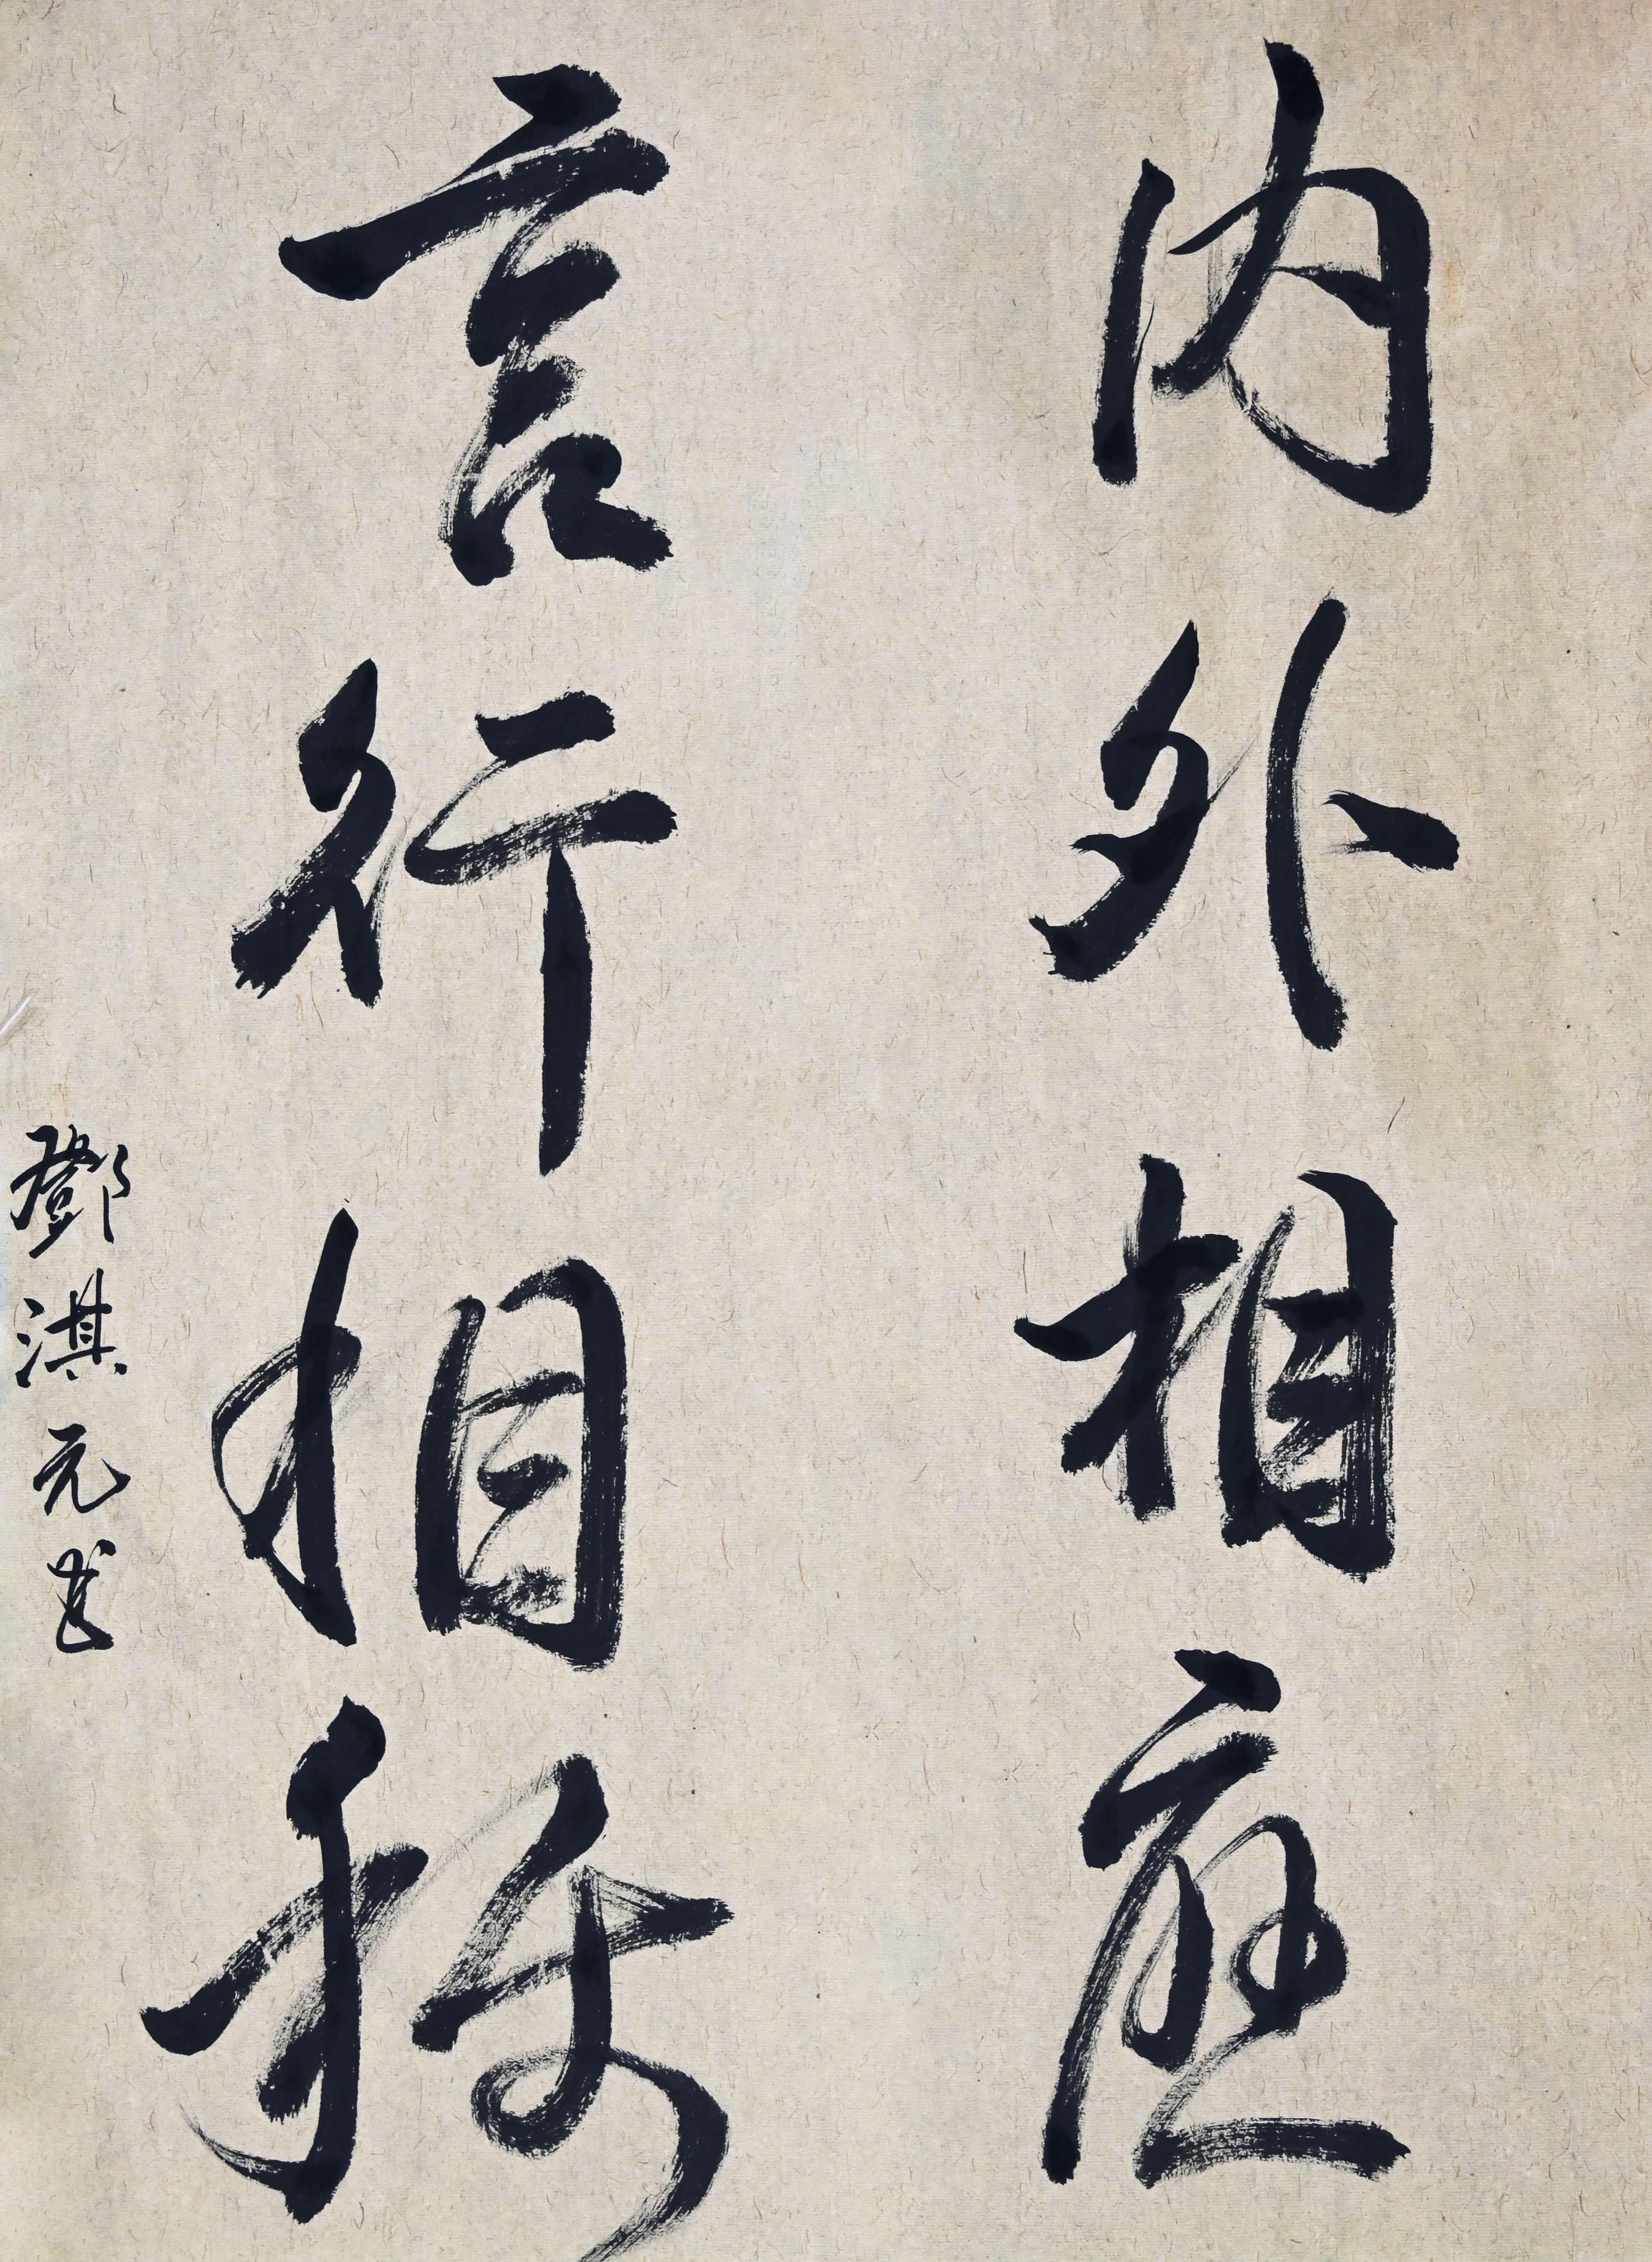 内外相應
言行相稱
鄧淇元書